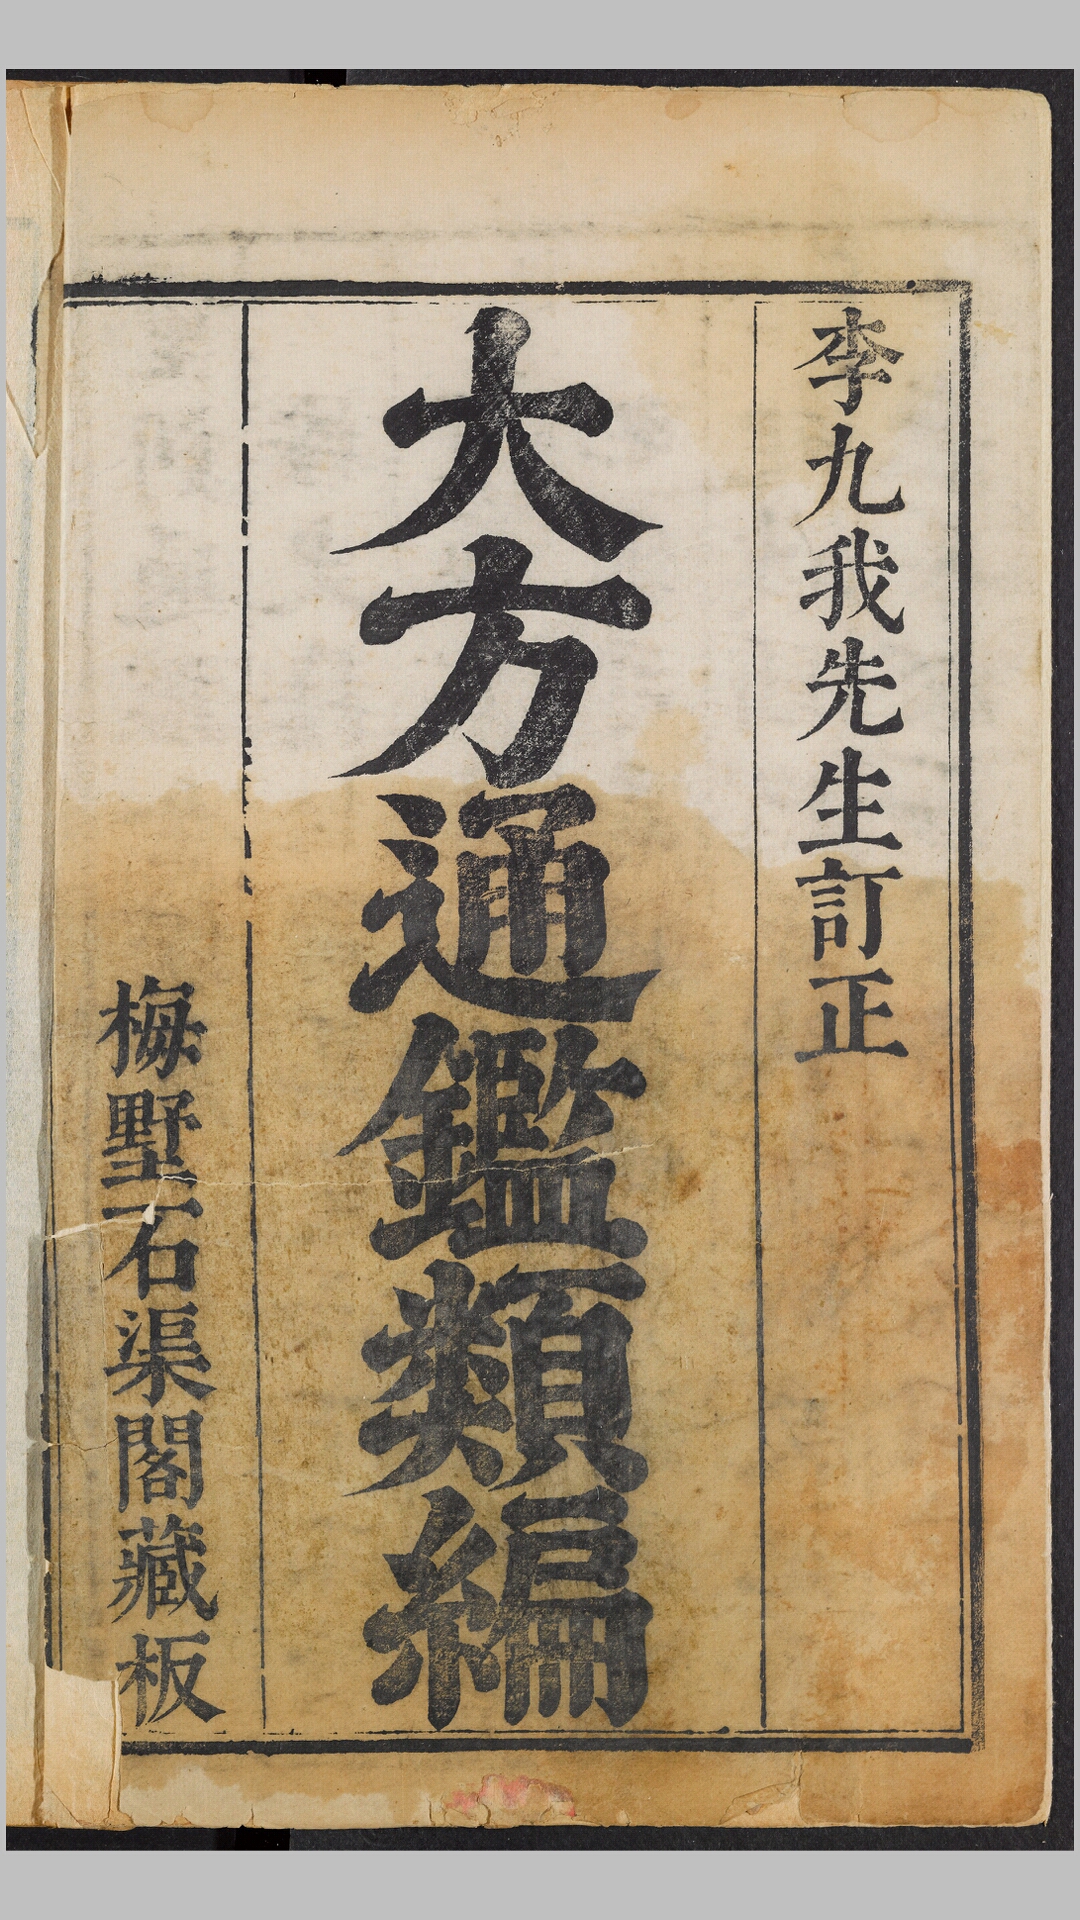 李九我先生訂正
大方通鑑類編
梅墅石渠閣藏板